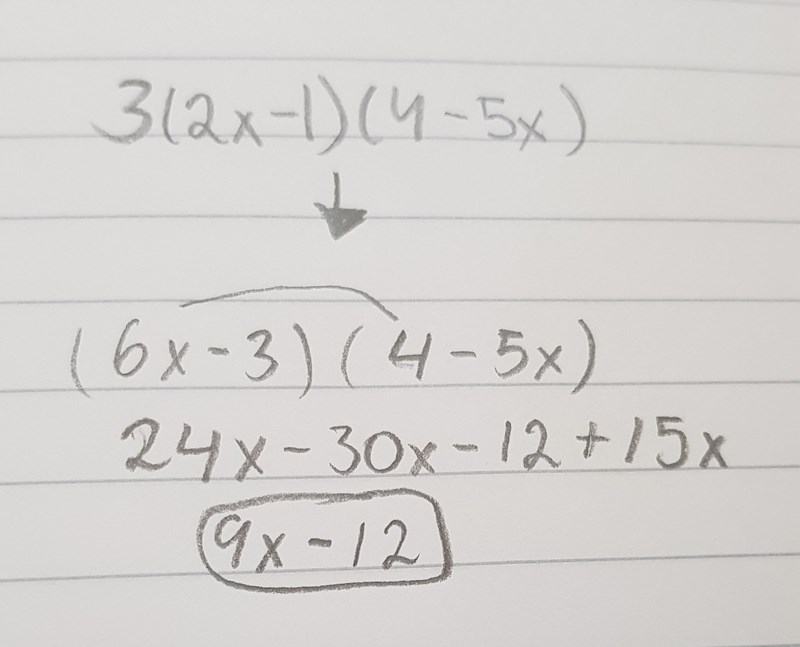 3(2x-1)(4-5x)
(6x-3)(4-5x)
24x-30x-12+15x
9x-12